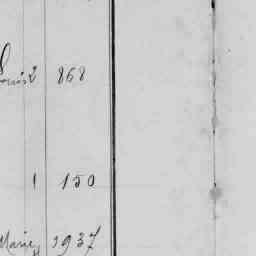 Louis 2 868
1 150
Marie 1937